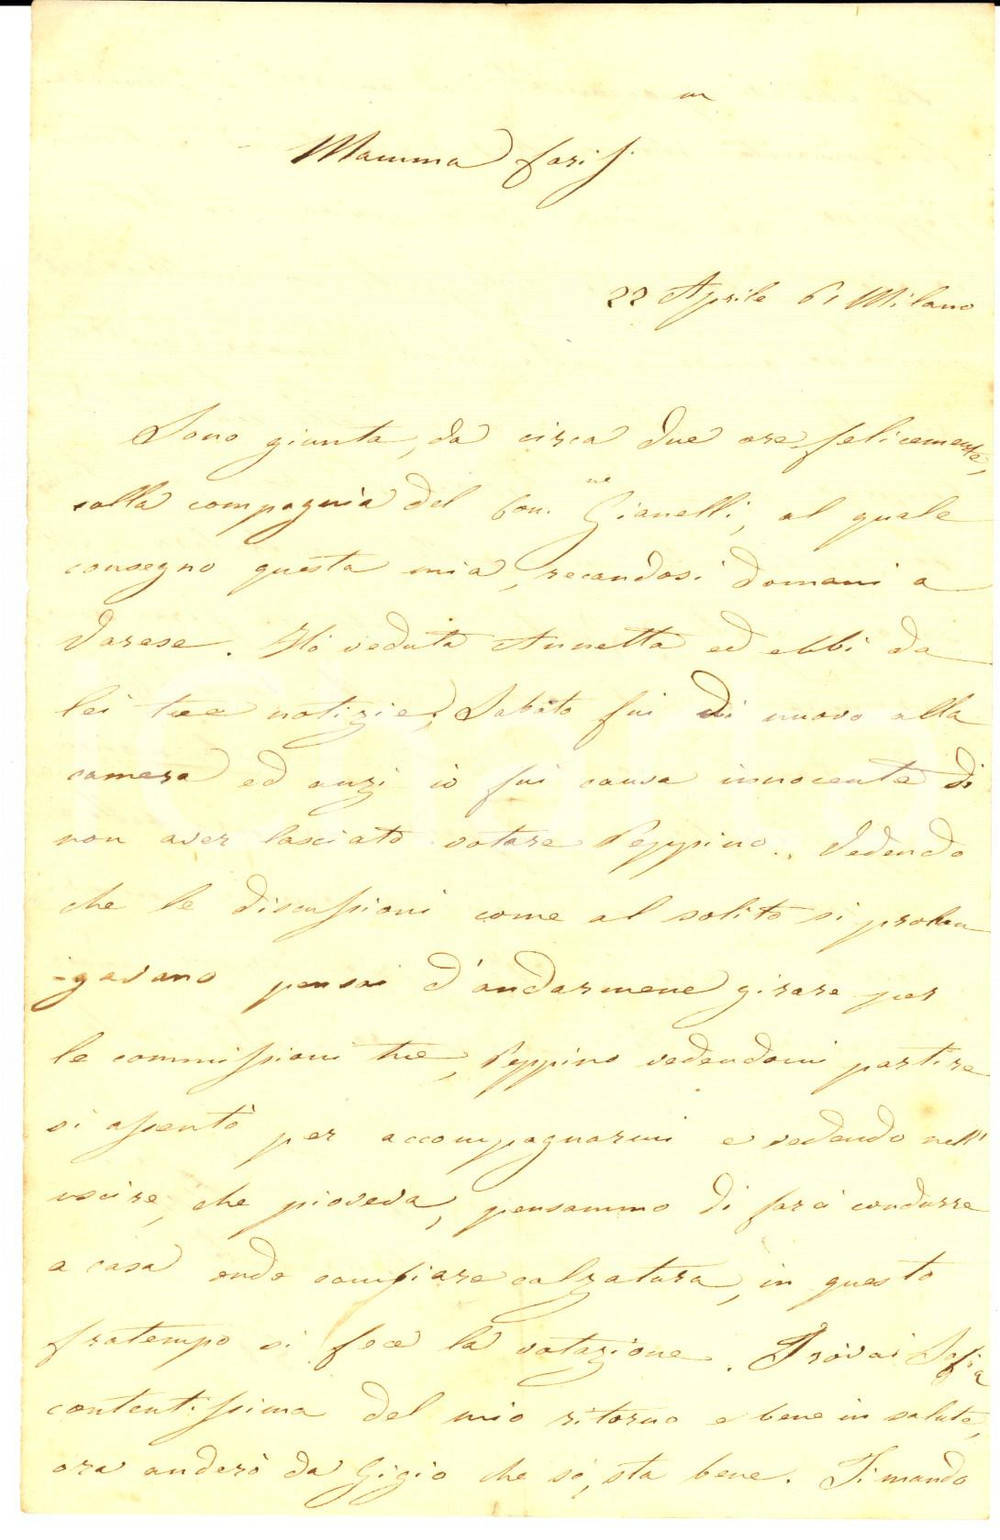 Mamma cariss.
22 Aprile 61 Milano
Sono giunta, da circa due ore felicemente,
colla compagnia del Con.ne Gianelli, al quale
consegno questa mia, recandosi domani a
Varese. Hò veduta Annetta ed ebbi da
lei tue notizie, Sabato fui di nuovo alla
camera ed anzi io fui causa innocente di
non aver lasciato votare Peppino. Vedendo
che le discussioni come al solito si prolun
-gavano pensai d'andarmene girare per
le commissioni tue, Peppino vedendomi partire
si assentò per accompagnarmi e vedendo nell'
uscire, che pioveva, pensammo di farci condurre
a casa onde cambiare calzatura, in questo
fratempo si fece la votazione. Trovai Sofia
contentissima del mio ritorno e bene in salute,
ora anderò da Gigio che sò, sta bene. Ti mando